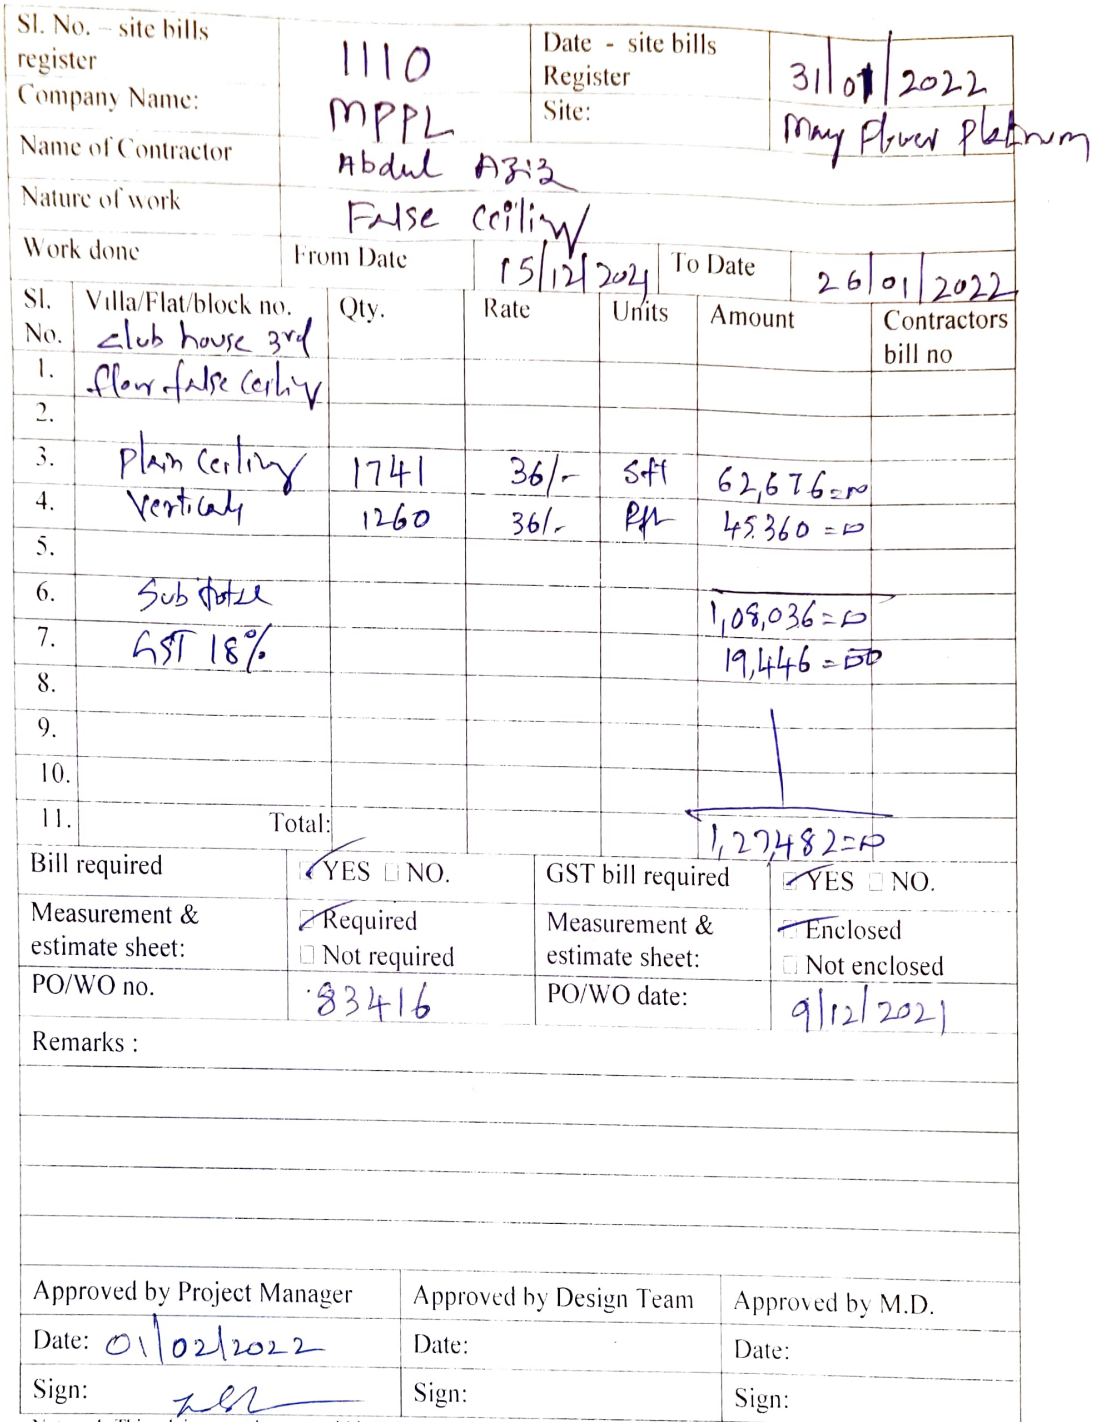 Sl. No. – site bills register 1110 Date - site bills Register 31/01/2022
Company Name: MPPL Site: May Flower Platinum
Name of Contractor Abdul Aziz
Nature of work False Ceiling
Work done From Date 15/12/2021 To Date 26/01/2022
Sl. No. Villa/Flat/block no. Qty. Rate Units Amount Contractors bill no
club house 3rd
1. floor false Ceiling
2.
3. Plain Ceiling 1741 36/- Sft 62,676=00
4. Verticals 1260 36/- Rft 45.360=00
5.
6. Sub total 1,08,036=00
7. GST 18% 19,446=00
8.
9.
10.
11. Total: 1,27,482=00
Bill required YES NO. GST bill required YES NO.
Measurement & estimate sheet: Required Not required Measurement & estimate sheet: Enclosed Not enclosed
PO/WO no. 83416 PO/WO date: 9/12/2021
Remarks :
Approved by Project Manager Approved by Design Team Approved by M.D.
Date: 01/02/2022 Date: Date:
Sign: Sign: Sign: